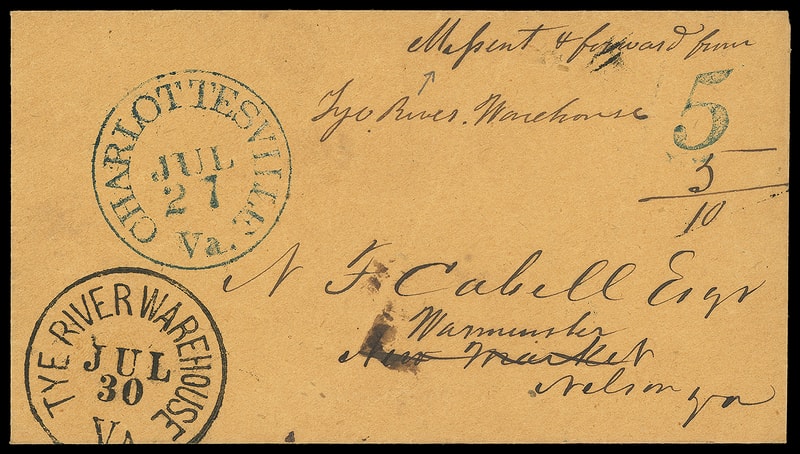 Missent & forward from
Tye River Warehouse
5
5
10
CHARLOTTESVILLE
JUL
27
Va.
N F Cabell Esqr
Warminster
New Market
Nelson Va
TYE RIVER WAREHOUSE
JUL
30
VA